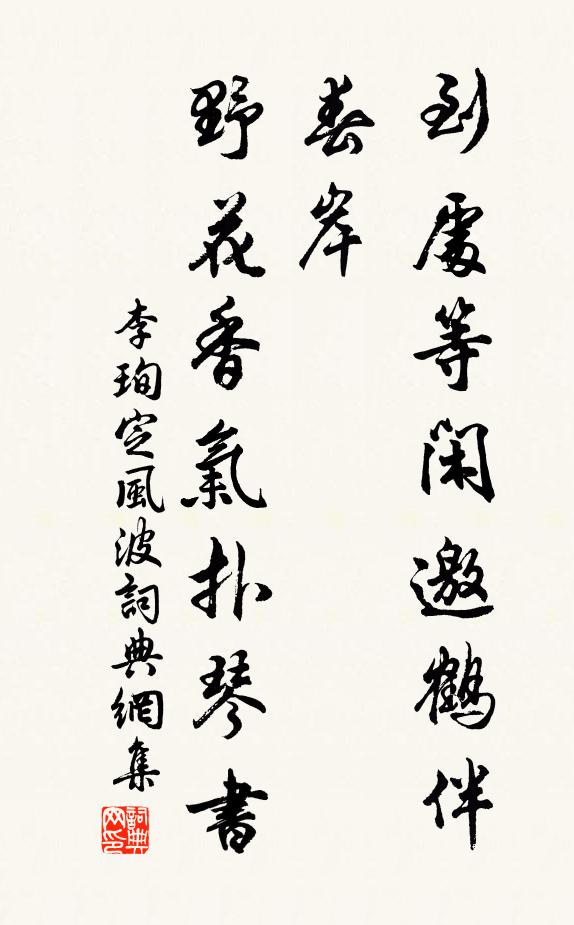 到處等閑邀鶴伴
春岸
野花香氣扑琴書
李珣定風波詞典網集
詞典網印